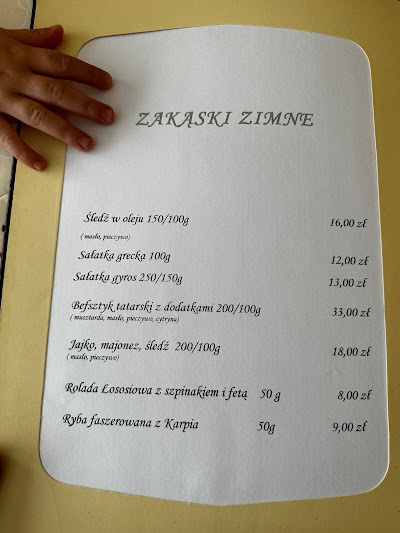 ZAKĄSKI ZIMNE
Śledź w oleju 150/100g 16,00 zł
( masło, pieczywo)
Sałatka grecka 100g 12,00 zł
Sałatka gyros 250/150g 13,00 zł
Befsztyk tatarski z dodatkami 200/100g 33,00 zł
( musztarda, masło, pieczywo, cytryna)
Jajko, majonez, śledź 200/100g 18,00 zł
( masło, pieczywo)
Rolada Łososiowa z szpinakiem i fetą 50 g 8,00 zł
Ryba faszerowana z Karpia 50g 9,00 zł